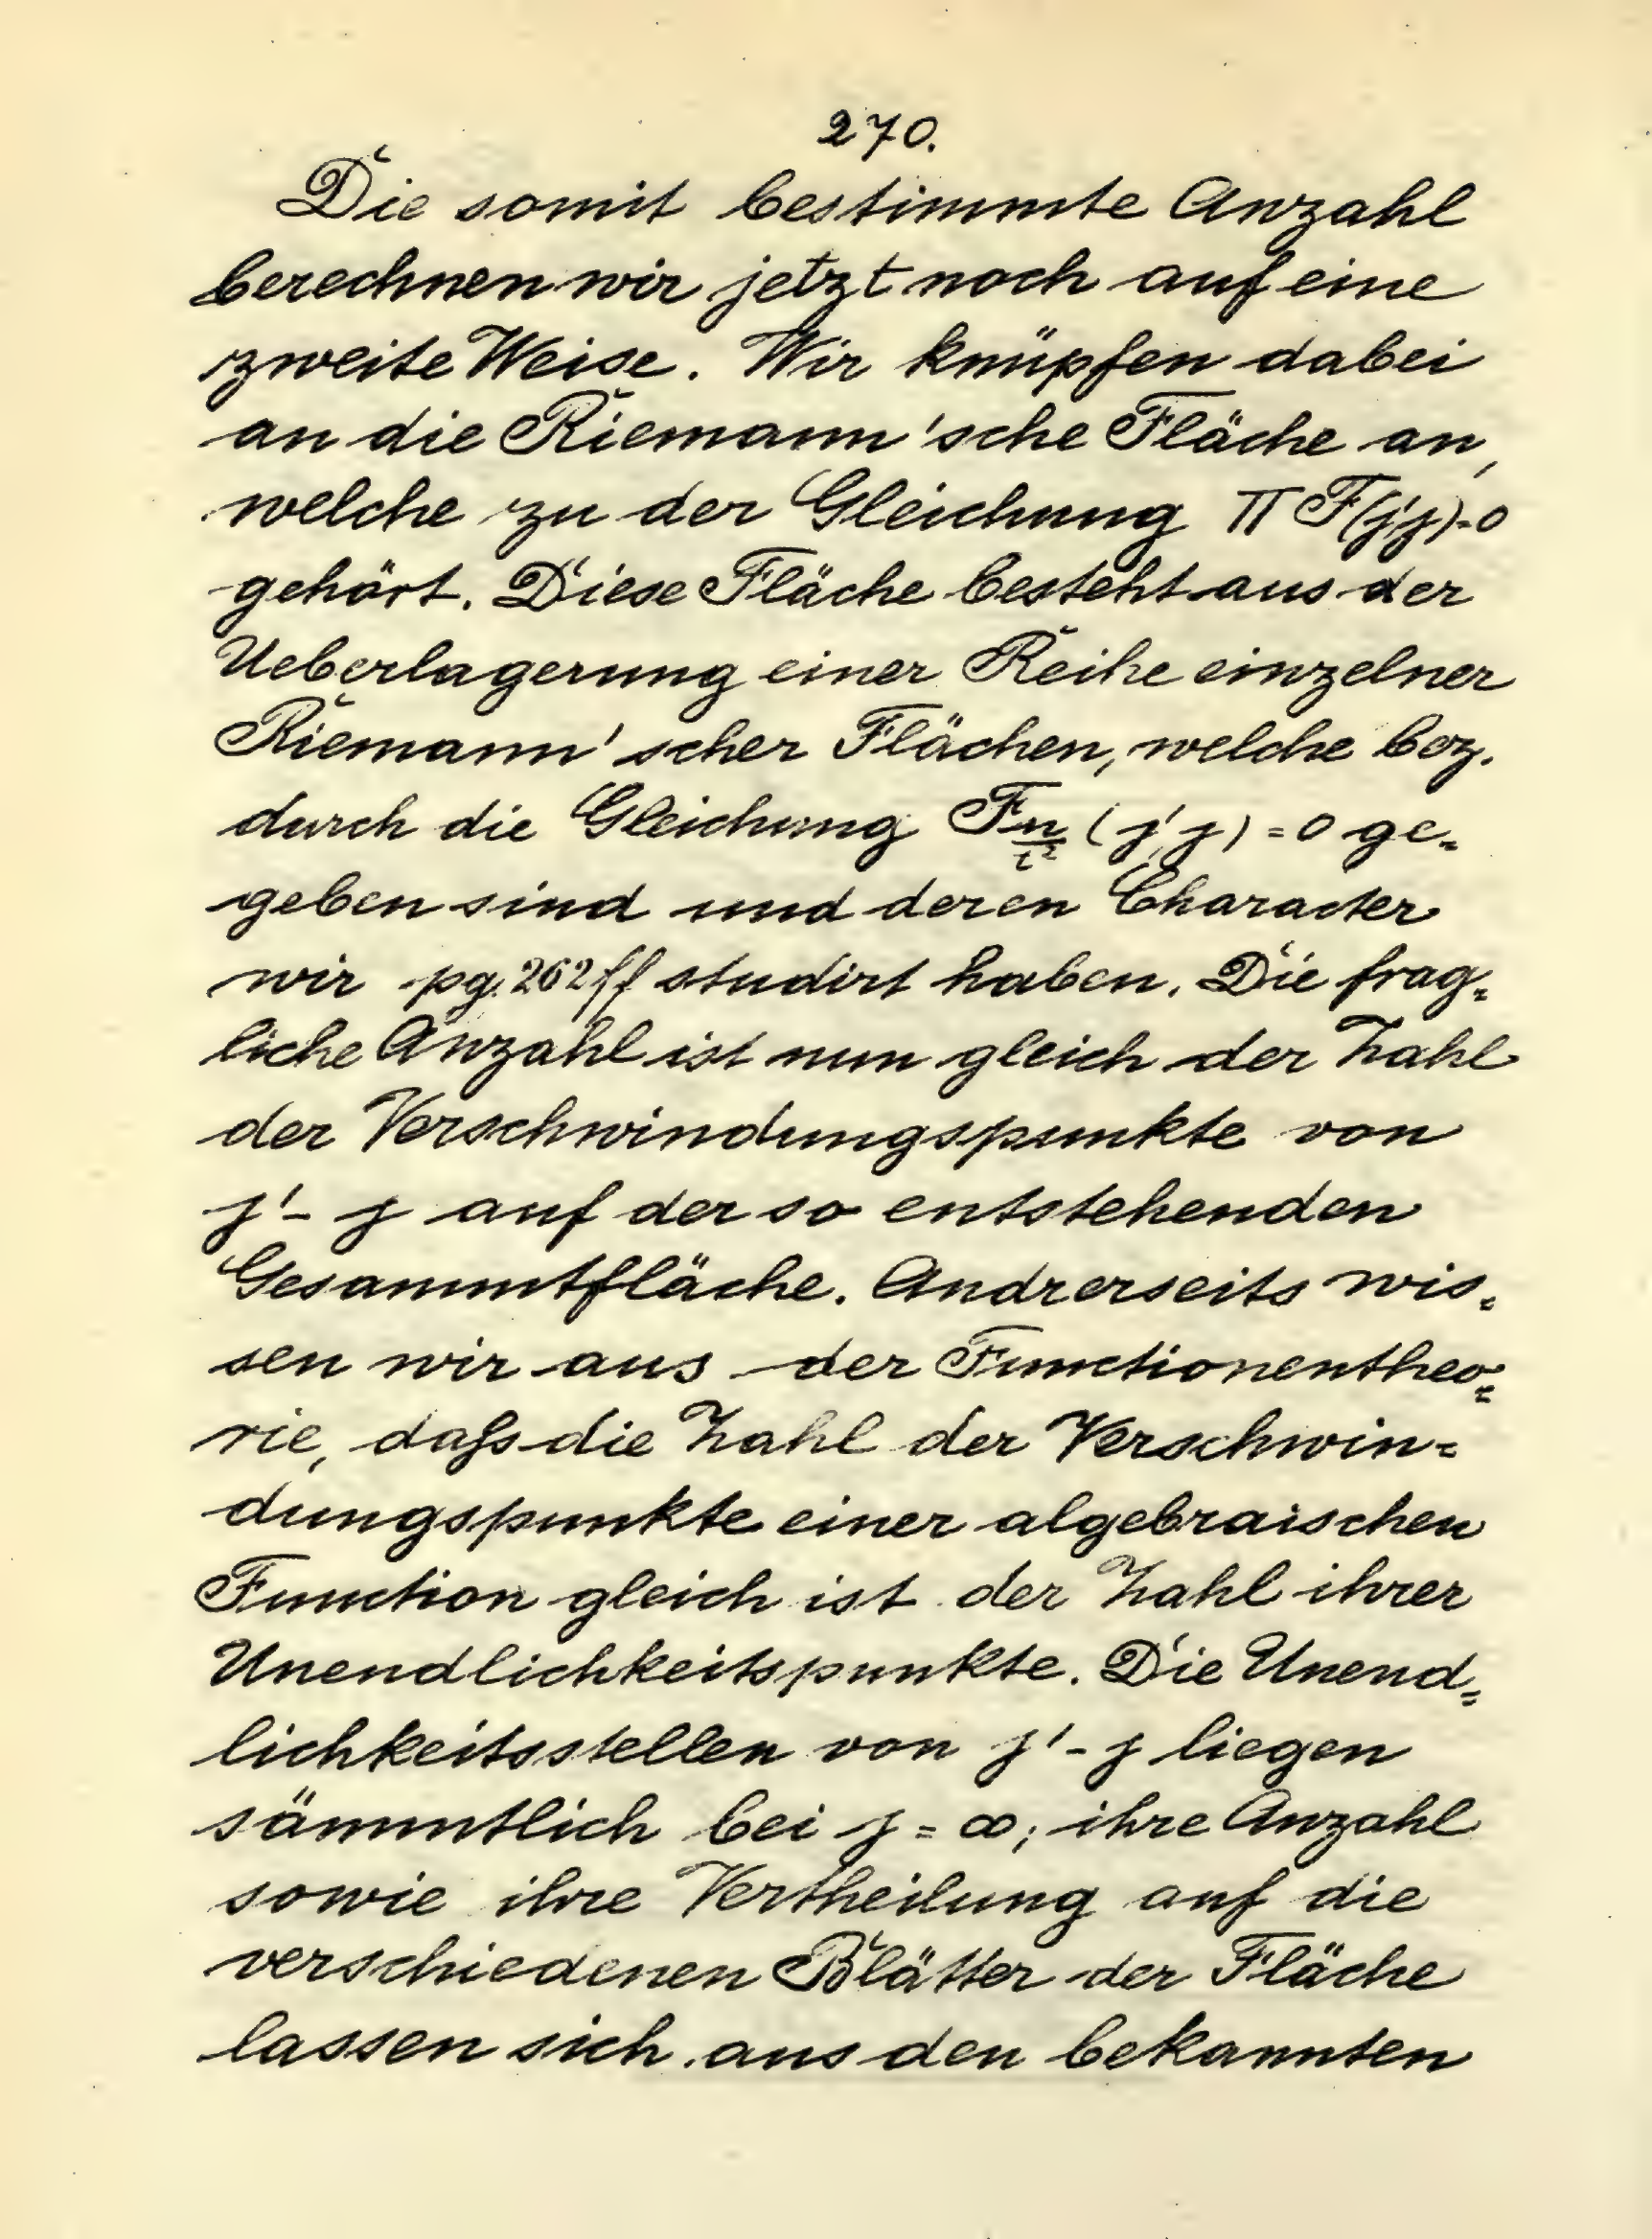 270.
Die somit bestimmte Anzahl
berechnen wir jetzt noch auf eine
zweite Weise. Wir knüpfen dabei
an die Riemann'sche Fläche an,
welche zu der Gleichung Π F(j'j)=0
gehört. Diese Fläche besteht aus der
Ueberlagerung einer Reihe einzelner
Riemann'scher Flächen, welche bez.
durch die Gleichung F_{n/t²} (j',j) = 0 ge=
geben sind und deren Character
wir pg. 262 ff studirt haben. Die frag=
liche Anzahl ist nun gleich der Zahl
der Verschwindungspunkte von
j' - j auf der so entstehenden
Gesammtfläche. Andrerseits wis=
sen wir aus der Functionentheo=
rie, daſs die Zahl der Verschwin=
dungspunkte einer algebraischen
Function gleich ist der Zahl ihrer
Unendlichkeitspunkte. Die Unend=
lichkeitsstellen von j' - j liegen
sämmtlich bei j = ∞; ihre Anzahl
sowie ihre Vertheilung auf die
verschiedenen Blätter der Fläche
lassen sich aus den bekannten